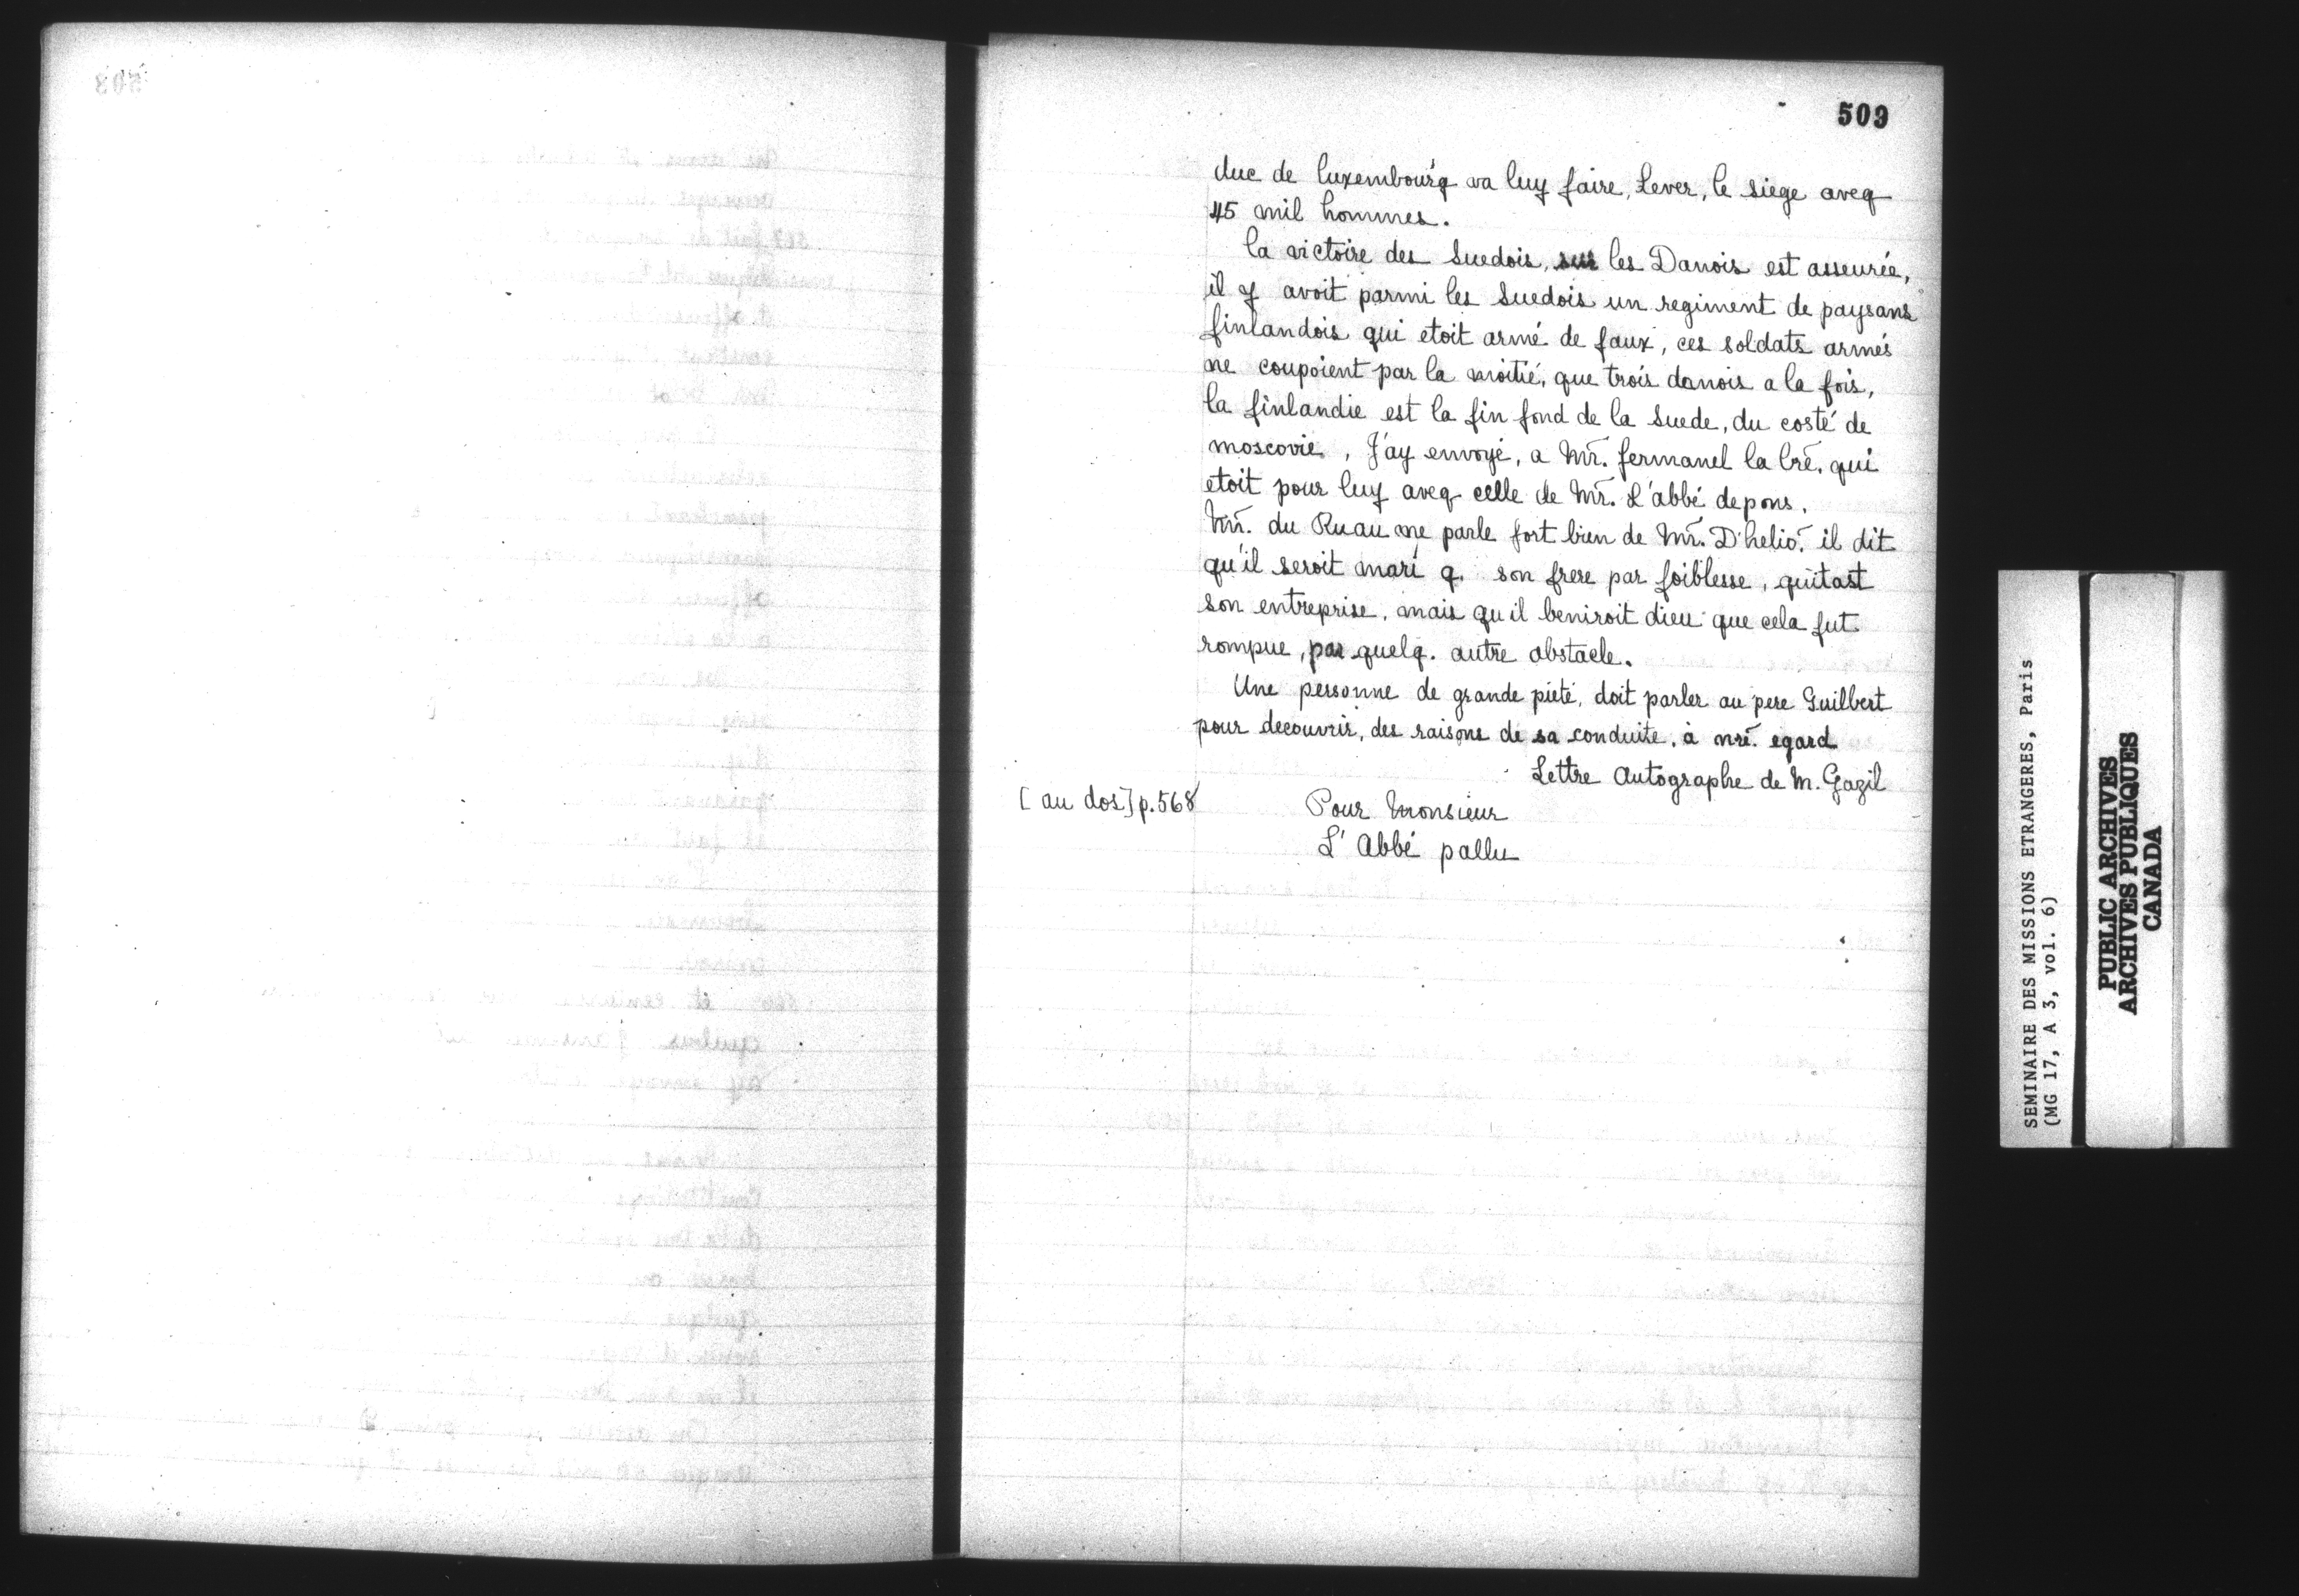 509
duc de luxembourg va luy faire, Lever, le siege aveq
45 mil hommes.
la victoire des Suedois, sur les Danois est asseurée,
il y avoit parmi les Suedois un regiment de paysans
finlandois qui etoit armé de faux, ces soldats armés
ne coupoient par la moitié, que trois danois a la fois,
la finlandie est la fin fond de la Suede, du costé de
moscovie, J'ay envoyé, a Mr. fermanel la lre. qui
etoit pour luy aveq celle de Mr. L'abbé de pons.
Mr. du Ruau me parle fort bien de Mr. D'helio. il dit
qu'il seroit mari q. son frere par foiblesse, quitast
son entreprise, mais qu'il beniroit dieu que cela fut
rompue, par quelq. autre obstacle.
Une personne de grande pieté, doit parler au pere Guilbert
pour decouvrir, des raisons de sa conduite, à nre. egard
Lettre Autographe de M. Gazil
[au dos] p. 568
Pour Monsieur
L'Abbé pallu
SEMINAIRE DES MISSIONS ETRANGERES, Paris
(MG 17, A 3, vol. 6)
PUBLIC ARCHIVES
ARCHIVES PUBLIQUES
CANADA